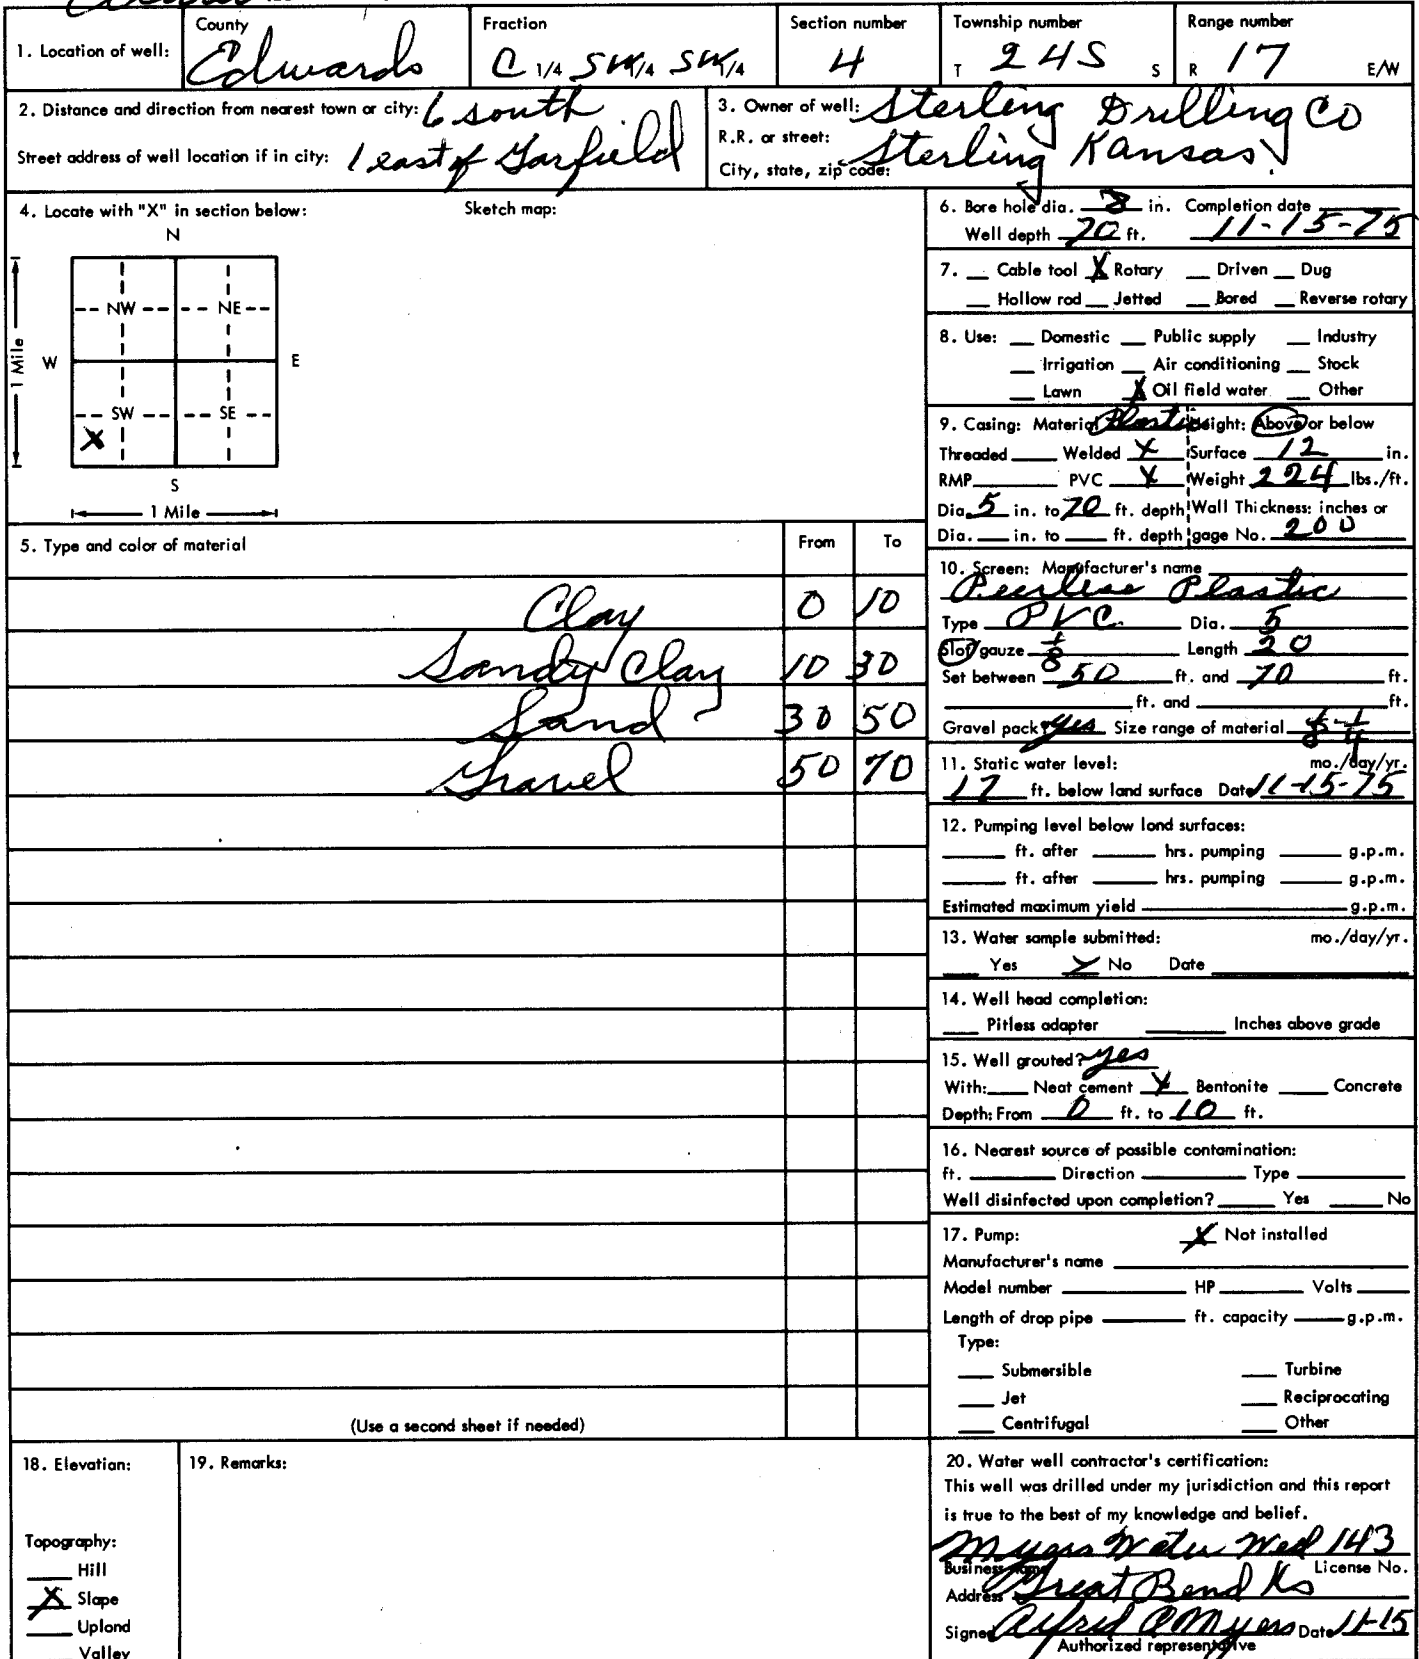 County Fraction Section number Township number Range number
1. Location of well: Edwards C 1/4 SW 1/4 SW 1/4 4 T 24S S R 17 E/W
2. Distance and direction from nearest town or city: 6 south
Street address of well location if in city: 1 east of Garfield
3. Owner of well: Sterling Drilling Co
R.R. or street:
City, state, zip code: Sterling Kansas
4. Locate with "X" in section below: Sketch map:
N
NW NE
W E
1 Mile
SW SE
X
S
1 Mile
5. Type and color of material From To
Clay 0 10
Sandy Clay 10 30
Sand 30 50
Gravel 50 70
(Use a second sheet if needed)
6. Bore hole dia. 8 in. Completion date
Well depth 70 ft. 11-15-75
7. Cable tool X Rotary Driven Dug
Hollow rod Jetted Bored Reverse rotary
8. Use: Domestic Public supply Industry
Irrigation Air conditioning Stock
Lawn X Oil field water Other
9. Casing: Material Plastic Height: Above or below
Threaded Welded X Surface 12 in.
RMP PVC X Weight 224 lbs./ft.
Dia. 5 in. to 70 ft. depth Wall Thickness: inches or
Dia. in. to ft. depth gage No. 200
10. Screen: Manufacturer's name
Peerless Plastic
Type PVC Dia. 5
Slot/gauze 1/8 Length 20
Set between 50 ft. and 70 ft.
ft. and ft.
Gravel pack? yes Size range of material 1/8-1/4
11. Static water level: mo./day/yr.
17 ft. below land surface Date 11-15-75
12. Pumping level below land surfaces:
ft. after hrs. pumping g.p.m.
ft. after hrs. pumping g.p.m.
Estimated maximum yield g.p.m.
13. Water sample submitted: mo./day/yr.
Yes X No Date
14. Well head completion:
Pitless adapter Inches above grade
15. Well grouted? yes
With: Neat cement X Bentonite Concrete
Depth: From 0 ft. to 10 ft.
16. Nearest source of possible contamination:
ft. Direction Type
Well disinfected upon completion? Yes No
17. Pump: X Not installed
Manufacturer's name
Model number HP Volts
Length of drop pipe ft. capacity g.p.m.
Type:
Submersible Turbine
Jet Reciprocating
Centrifugal Other
18. Elevation:
Topography:
Hill
X Slope
Upland
Valley
19. Remarks:
20. Water well contractor's certification:
This well was drilled under my jurisdiction and this report
is true to the best of my knowledge and belief.
Myers Water Well 143
Business name License No.
Address Great Bend Ks
Signed Alfred A Myers Date 11-15
Authorized representative